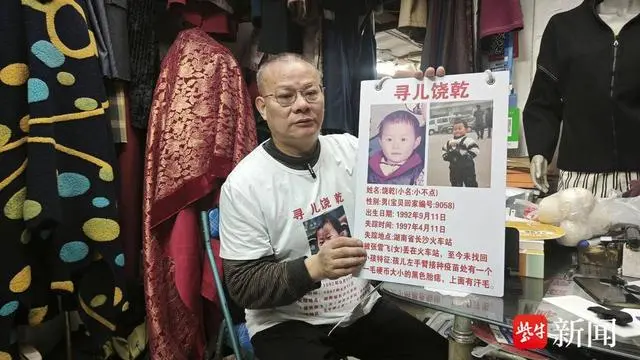 寻儿饶乾
姓名:饶乾(小名:小不点)
性别:男(宝贝回家编号:9058)
出生日期:1992年9月11日
失踪时间:1997年4月11日
失踪地点:湖南省长沙火车站
被张雪飞(女)丢在火车站,至今未找回
小孩特征:孩儿左手臂接种疫苗处有一
一毛硬币大小的黑色胎痣,上面有汗毛
寻儿饶乾
紫牛新闻